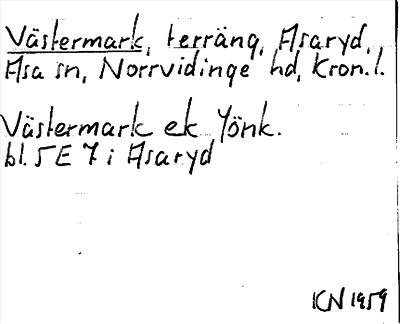 Västermark, terräng, Asaryd,
Asa sn, Norrvidinge hd, Kron.l.
Västermark ek Jönk.
bl. 5 E 7 i Asaryd
KN 1959